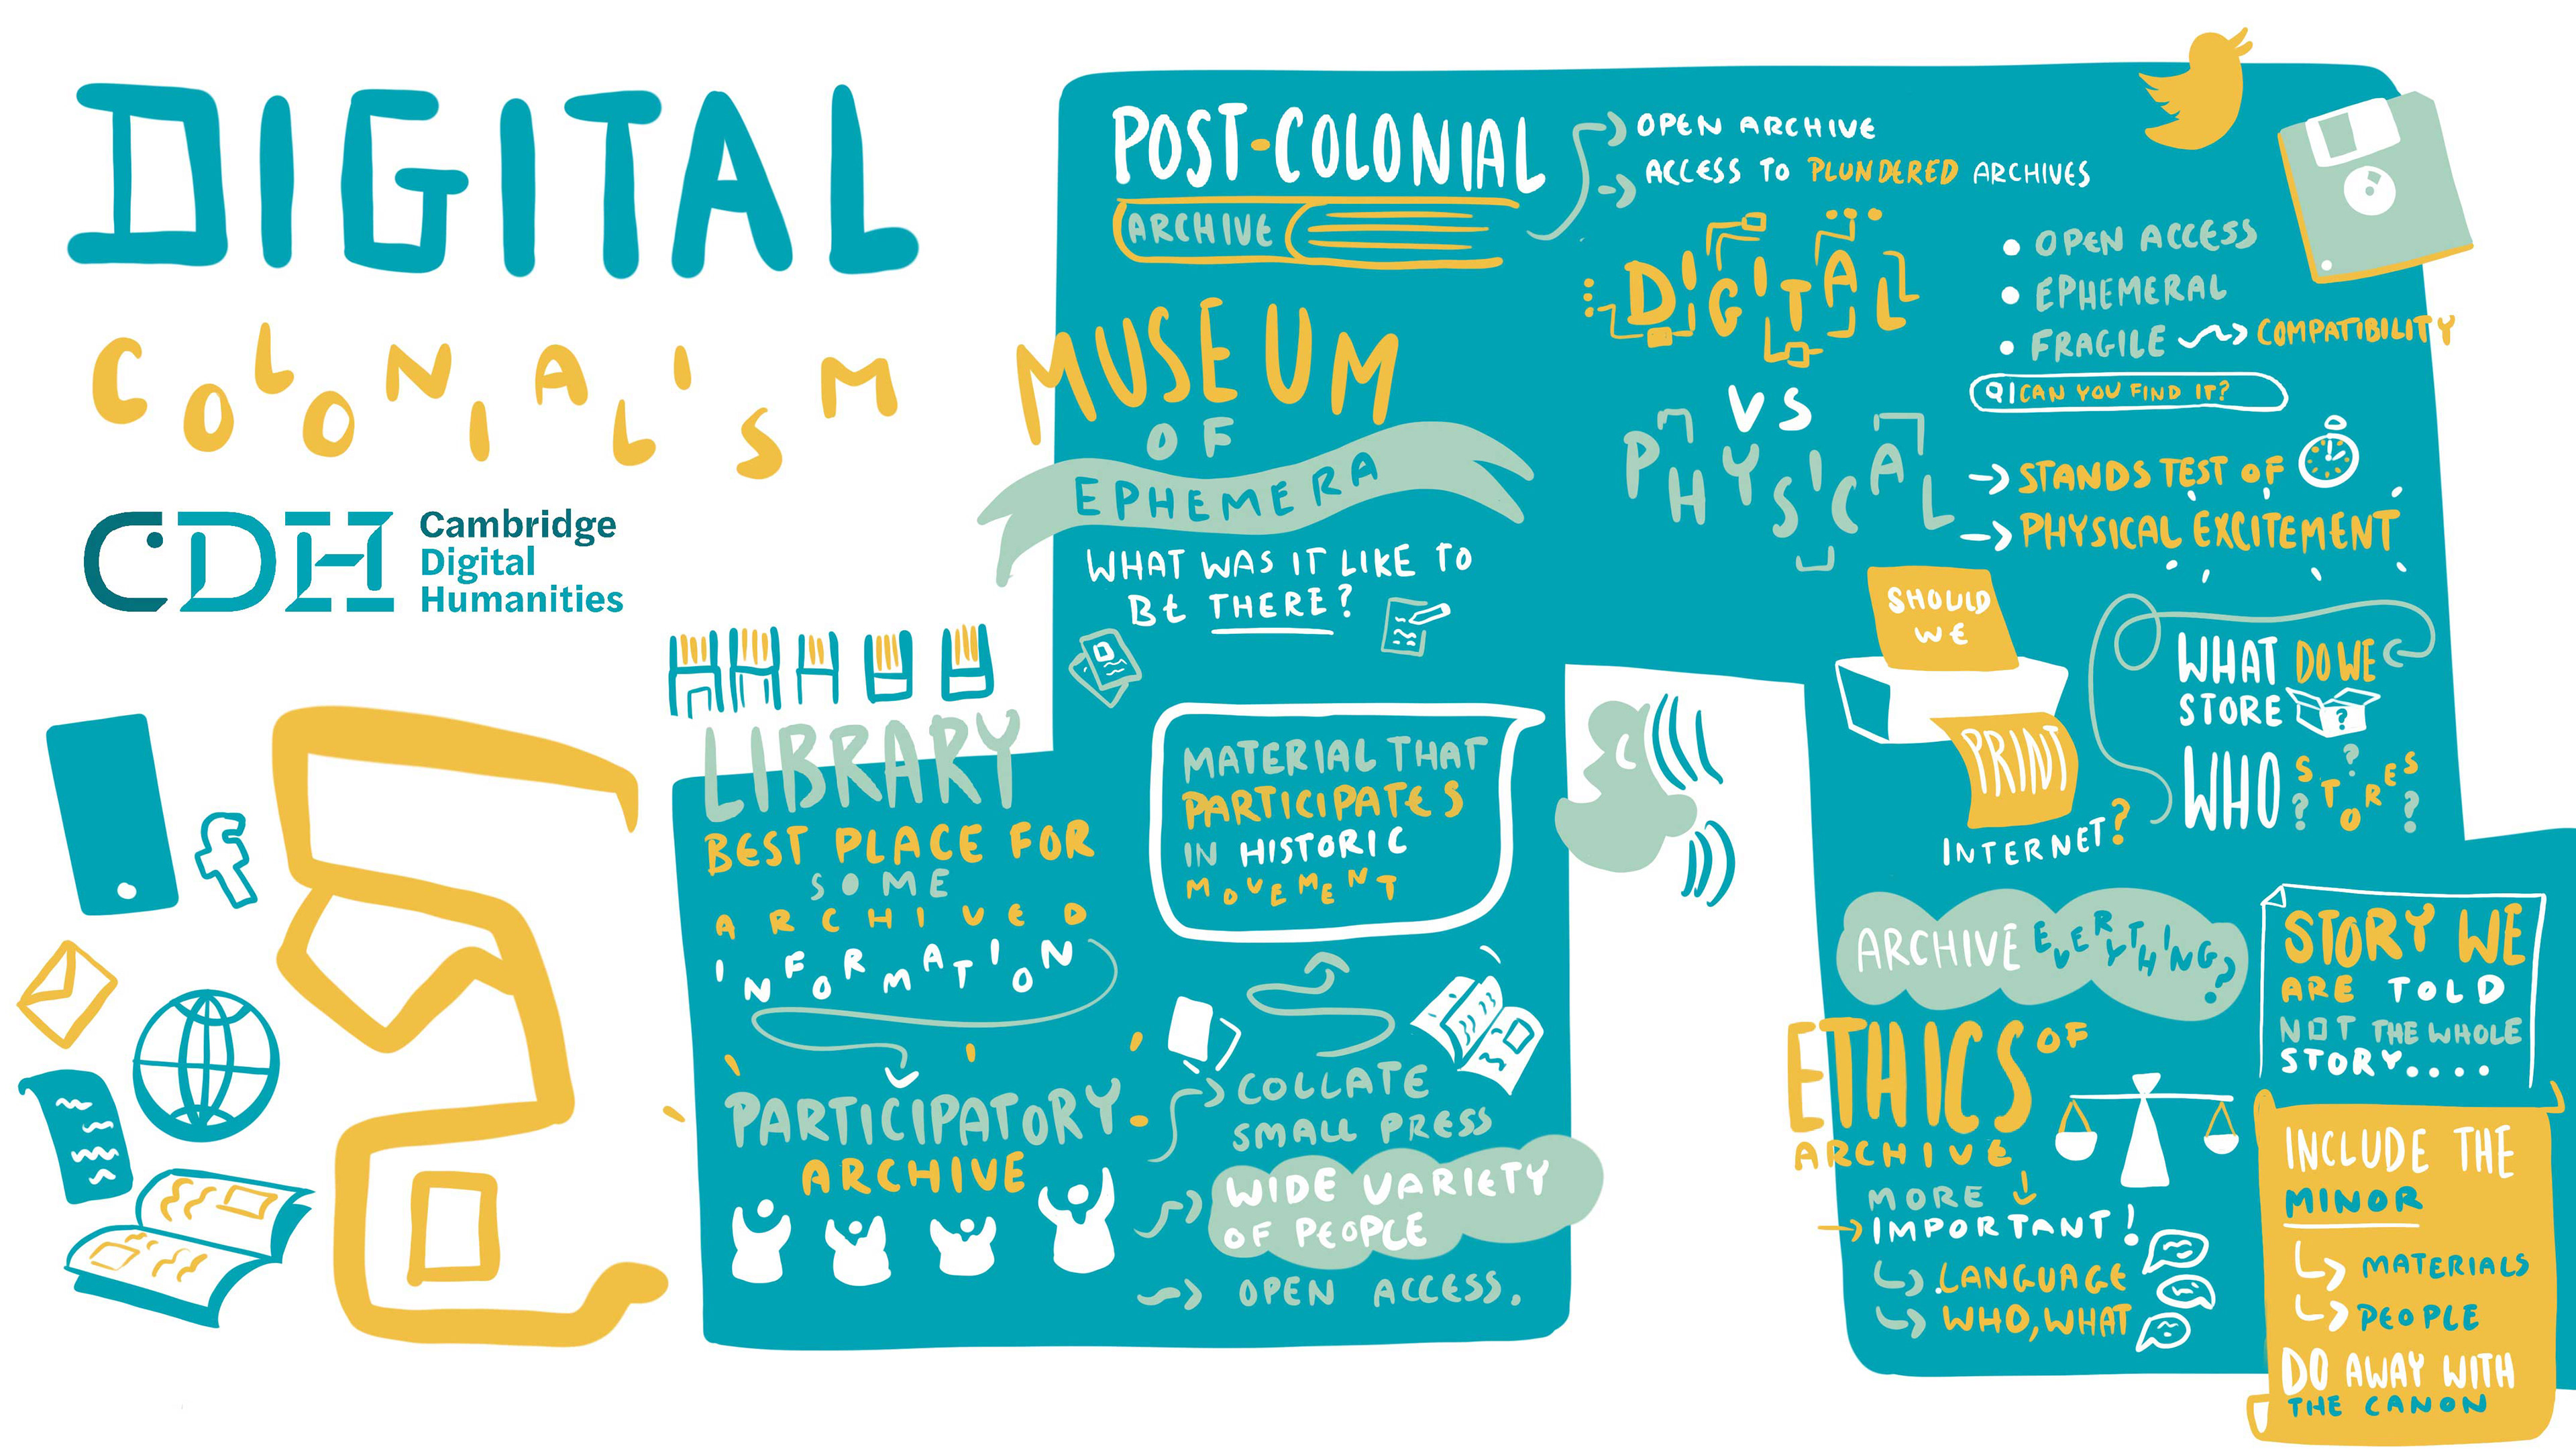 DIGITAL
COLONIALISM
CDH
Cambridge
Digital
Humanities
POST-COLONIAL
ARCHIVE
OPEN ARCHIVE
ACCESS TO PLUNDERED ARCHIVES
MUSEUM
OF
EPHEMERA
WHAT WAS IT LIKE TO
BE THERE?
DIGITAL
VS
PHYSICAL
OPEN ACCESS
EPHEMERAL
FRAGILE COMPATIBILITY
CAN YOU FIND IT?
STANDS TEST OF
PHYSICAL EXCITEMENT
LIBRARY
BEST PLACE FOR
SOME
ARCHIVED
INFORMATION
PARTICIPATORY
ARCHIVE
MATERIAL THAT
PARTICIPATES
IN HISTORIC
MOVEMENT
COLLATE
SMALL PRESS
WIDE VARIETY
OF PEOPLE
OPEN ACCESS.
SHOULD
WE
PRINT
INTERNET?
WHAT DO WE
STORE ?
WHO STORES
? ? ?
ARCHIVE EVERYTHING?
ETHICS OF
ARCHIVE
MORE
IMPORTANT!
LANGUAGE
WHO, WHAT
STORY WE
ARE TOLD
NOT THE WHOLE
STORY....
INCLUDE THE
MINOR
MATERIALS
PEOPLE
DO AWAY WITH
THE CANON